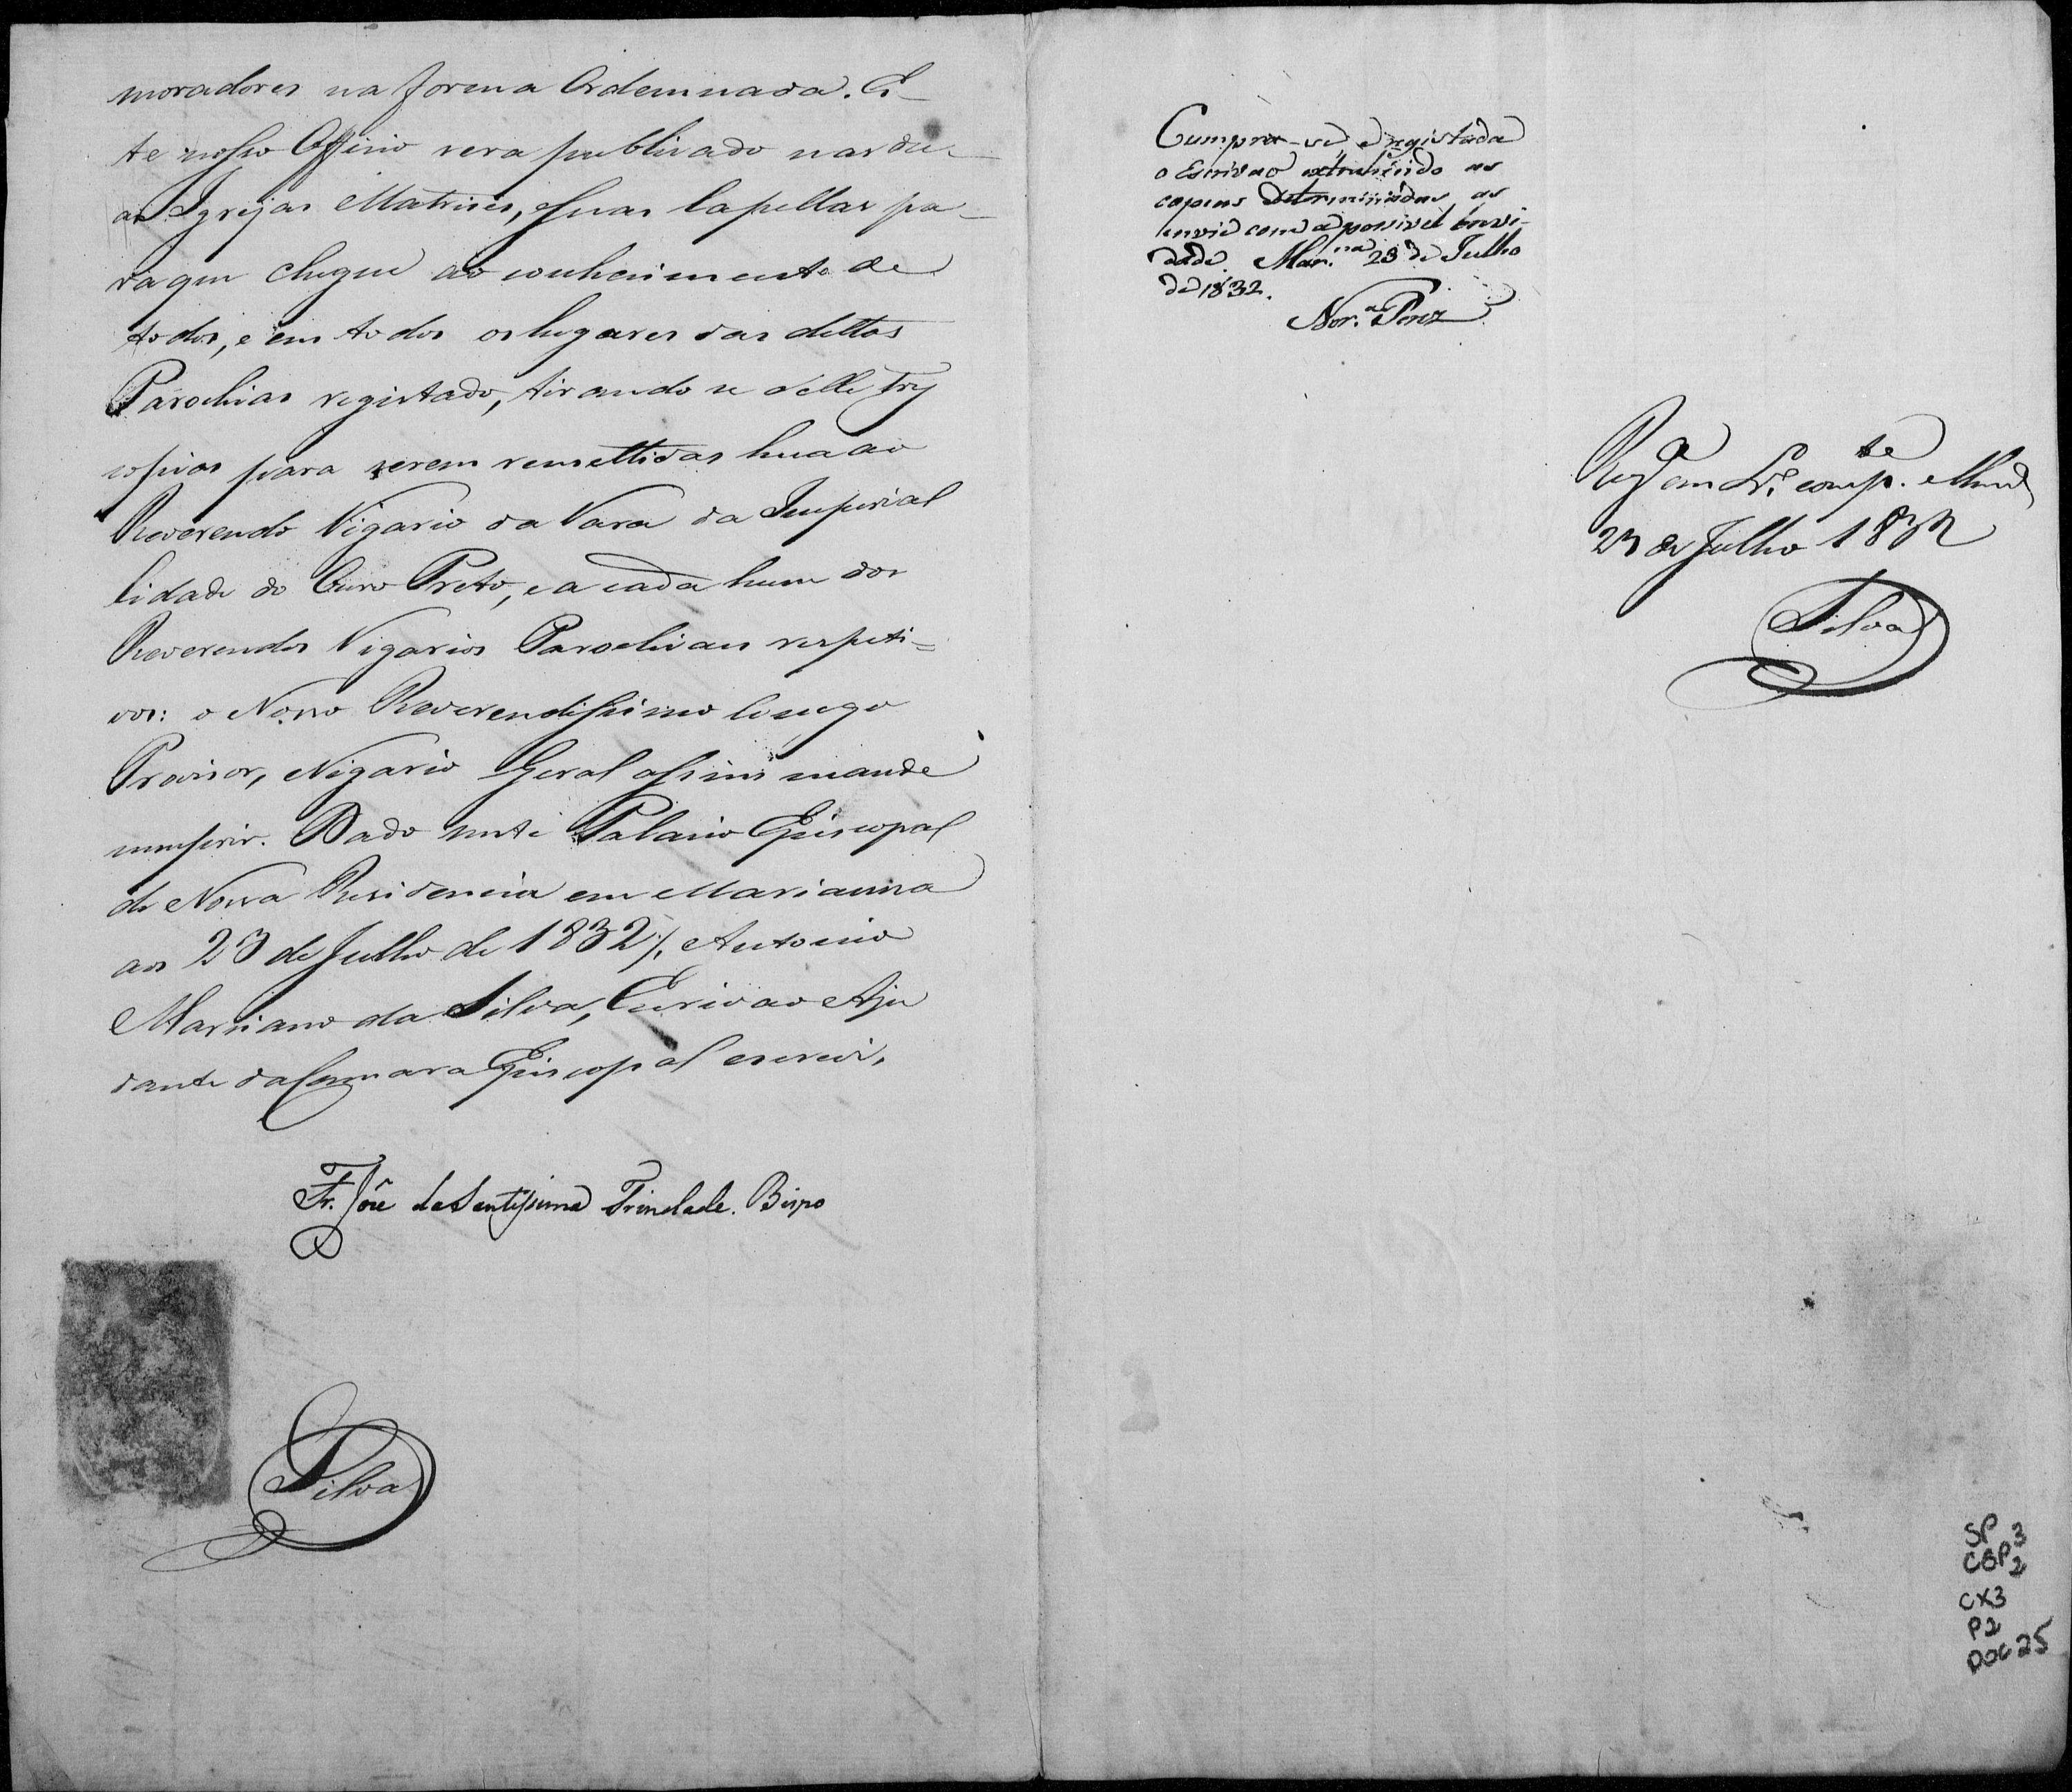 moradores na forma Ordemnada. Es-
te nosso Officio sera publicado nas du-
as Igrejas Matrises, e suas Capellas pa-
ra que chegue ao conhecimento de
todos, e em todos os lugares das dittas
Parochias registado, tirando se delle trez
copias para serem remettidas hua ao
Reverendo Vigario da Vara da Imperial
Cidade do Ouro Preto, e a cada hum dos
Reverendos Vigarios Parochiaes respeti=
vos: o Nosso Reverendissimo Conego
Provisor, e Vigario Geral assim mande
cumprir. Dado neste Palacio Episcopal
de Nossa Residencia em Marianna
aos 23 de Julho de 1832/. Antonio
Marianno da Silva, Escrivao Aju
dante da Camara Episcopal escrevi.
Fr. José da Santissima Trindade. Bispo
Silva
Cumpra-se, e registada
o Escrivaõ extrahindo as
copias determinadas, as
envie com a possivel brevi-
dade. Mar.na 23 de Julho
de 1832.
Reg.da em L.o comp.te
23 de Julho 1832
Silva
SP 3
CBP 2
CX3
P2
DOC 25